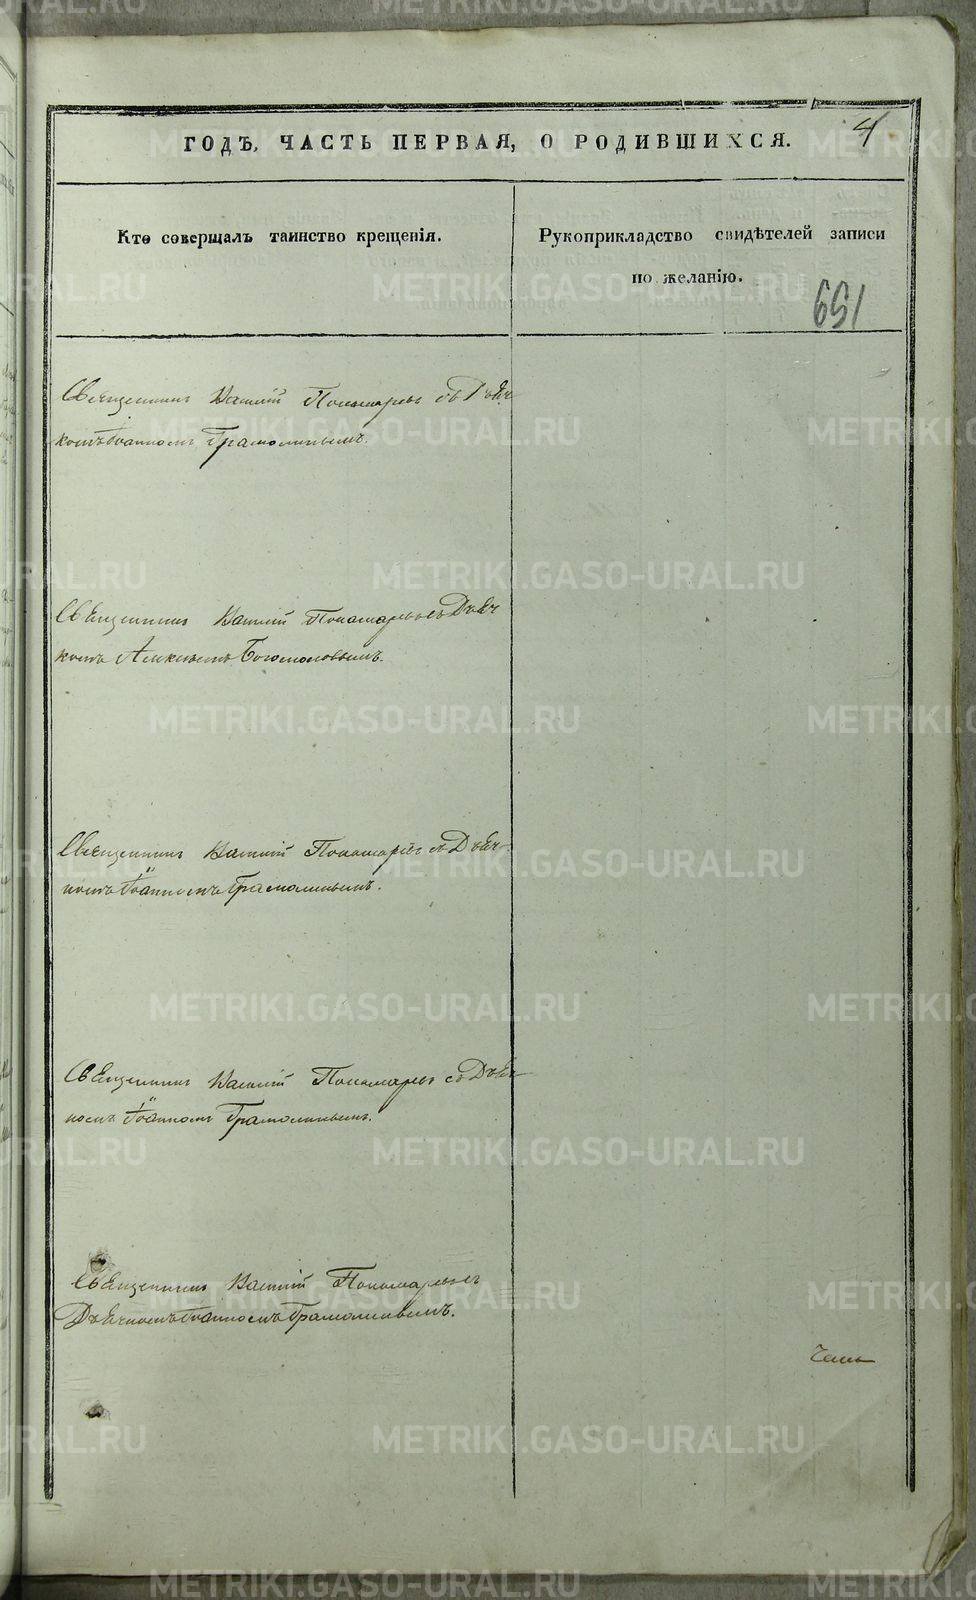 4
ГОДЪ, ЧАСТЬ ПЕРВАЯ, О РОДИВШИХСЯ.
Кто совершалъ таинство крещенія.
Рукоприкладство свидѣтелей записи
по желанію.
651
Священникъ Василій Пономаревъ съ Дьяч
комъ Іоанномъ Грамолинымъ.
Священникъ Василій Пономаревъ съ Дьяч
комъ Алексѣемъ Богомоловымъ.
Священникъ Василій Пономаревъ съ Дьяч-
комъ Іоанномъ Грамолинымъ.
Священникъ Василій Пономаревъ съ Дьяч
комъ Іоанномъ Грамолинымъ.
Священникъ Василій Пономаревъ съ
Дьячкомъ Іоанномъ Грамолинымъ.
METRIKI.GASO-URAL.RU